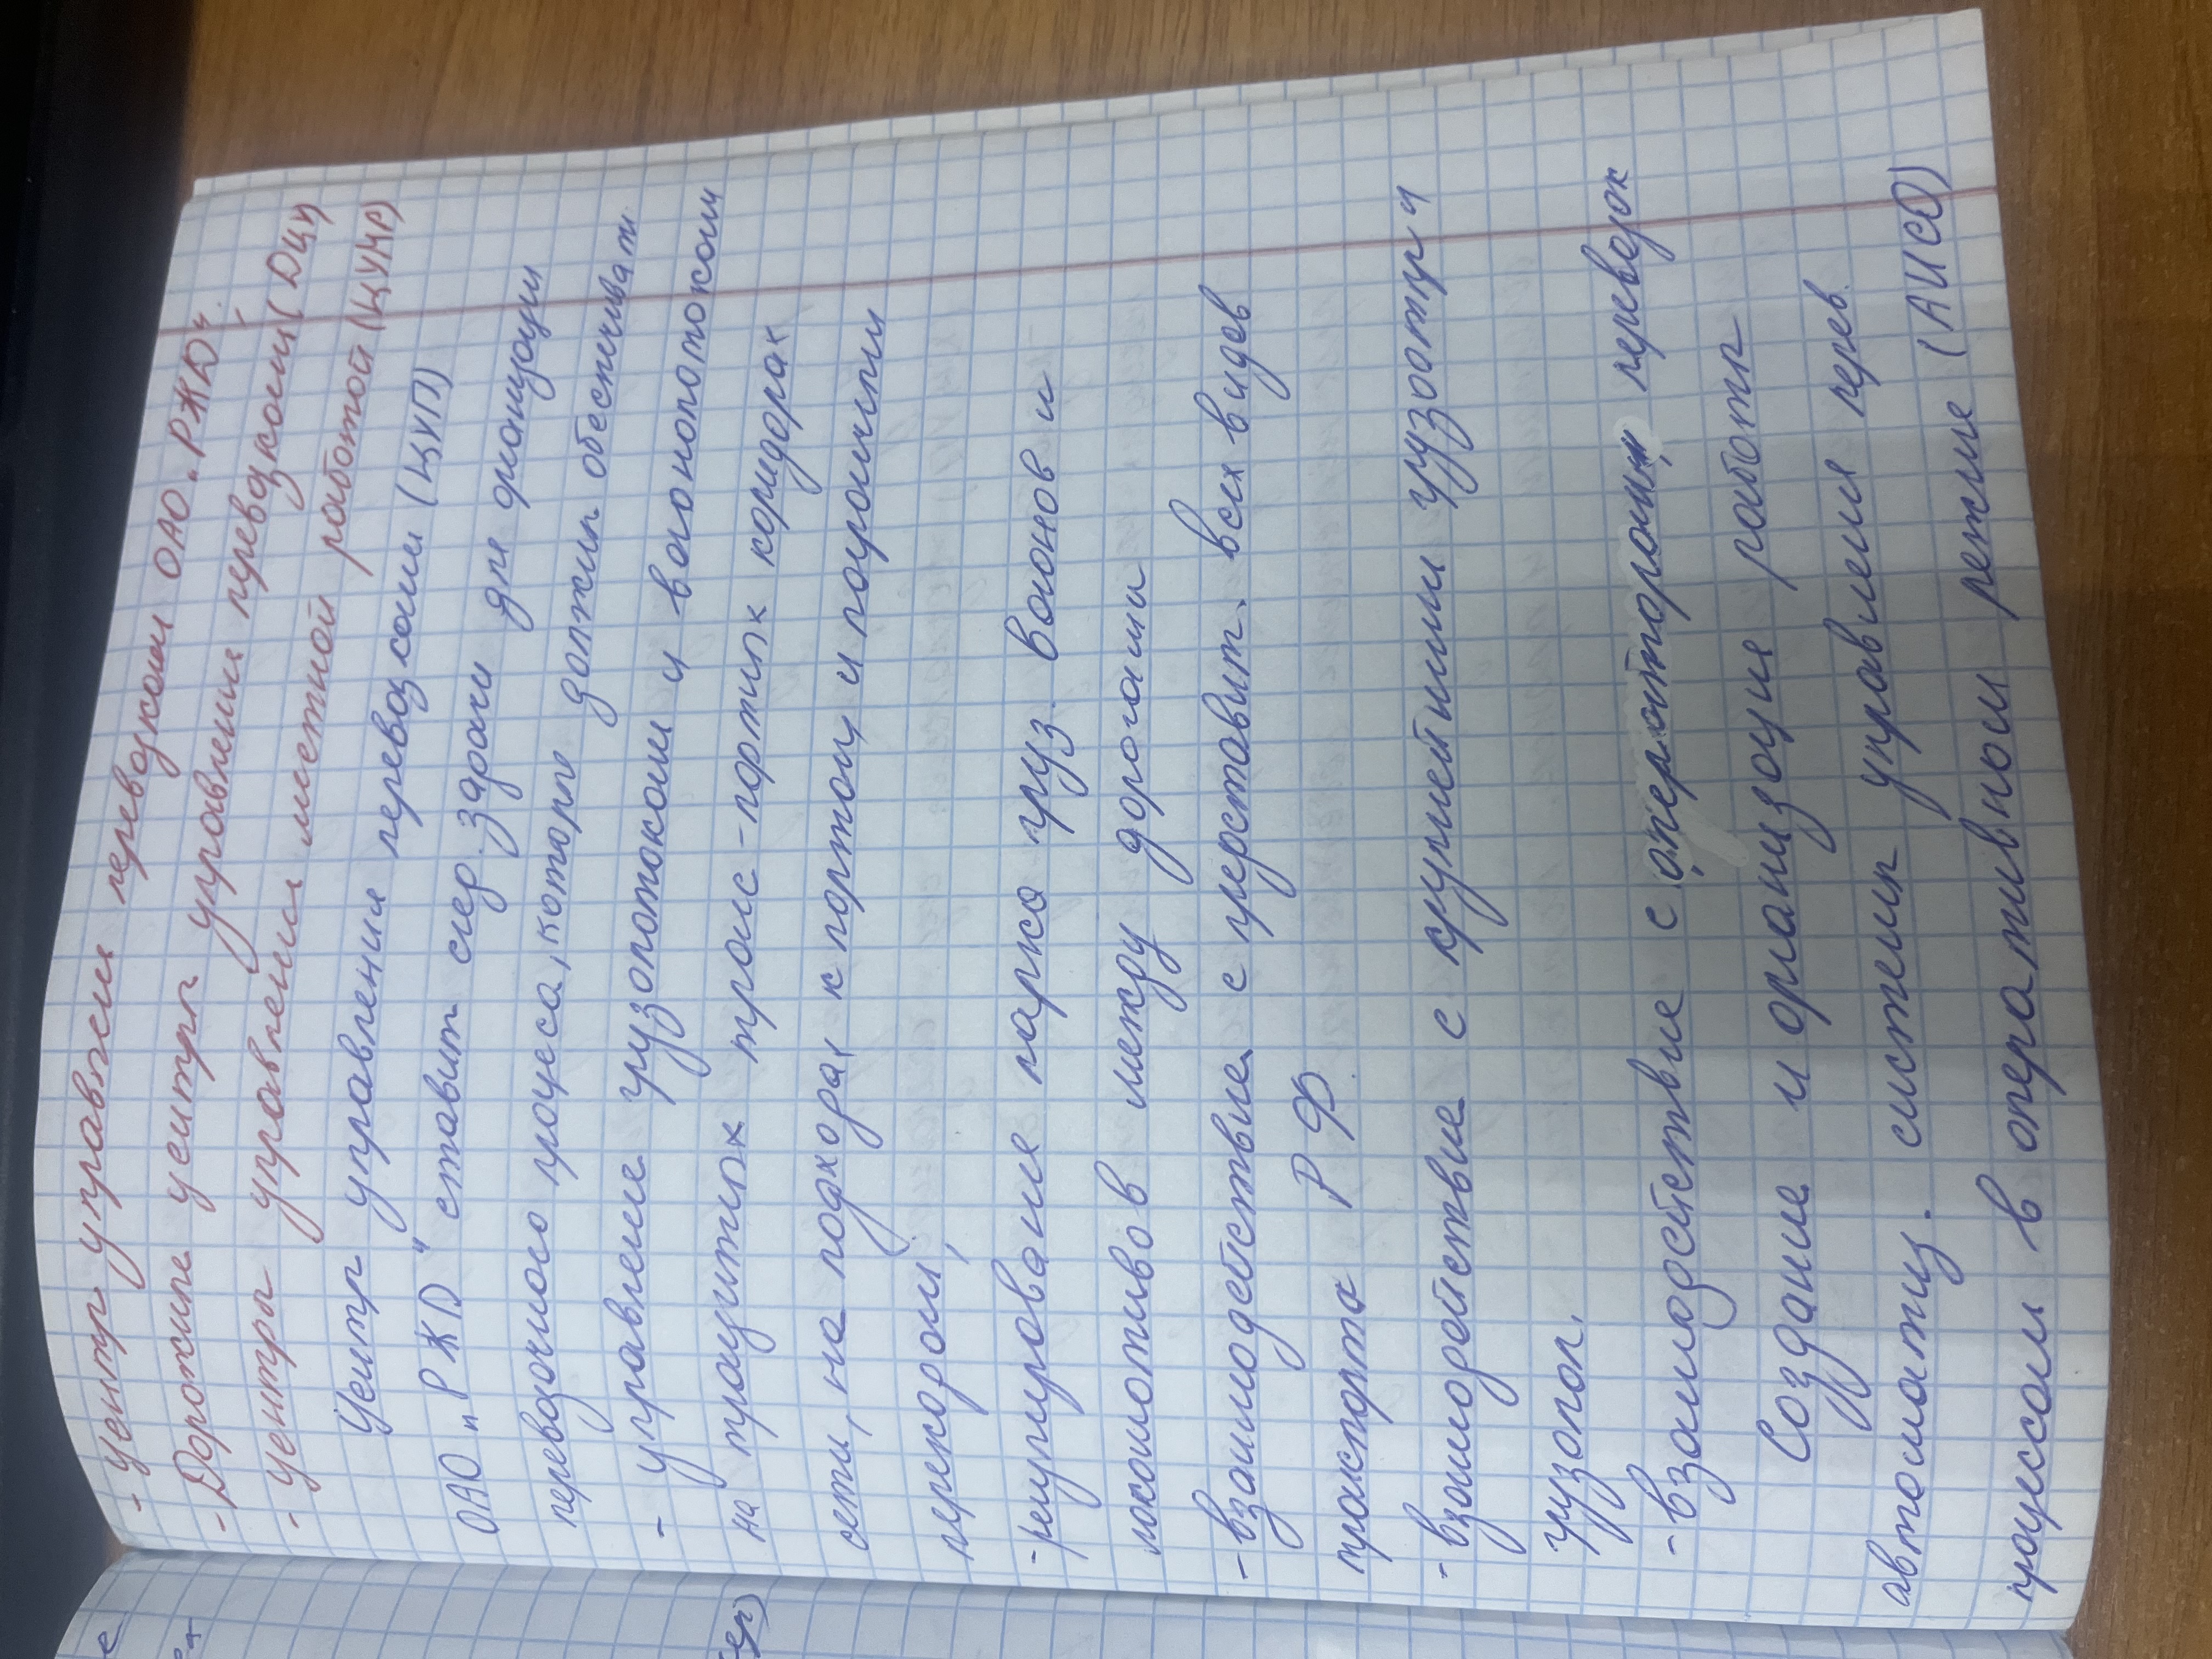 - Центр управлен перевозками ОАО „РЖД";
- Дорожные центры управлении перевозками (ДЦУ)
- центры управления местной работой (ЦУМР)
Центр управления перевозками (ЦУП)
ОАО „РЖД" ставит след. задачи для организации
перевозочного процеса, которые должны обеспечивать
- управление грузопотоками и вагонопотоками
на транзитных транс-портных коридорах
сети, на подходах к портам и погранични
переходам;
- регулирование парка груз. вагонов и
локомотивов между дорогами
- взаимодействие с представит. всех видов
транспорта РФ.
- взаимодействие с крупнейшими грузоотпр и
грузопол.
- взаимодействие с операторами перевозок
Создание и организация работы
автоматиз. системы управления перев.
процессом в оперативном режиме (АИСО)